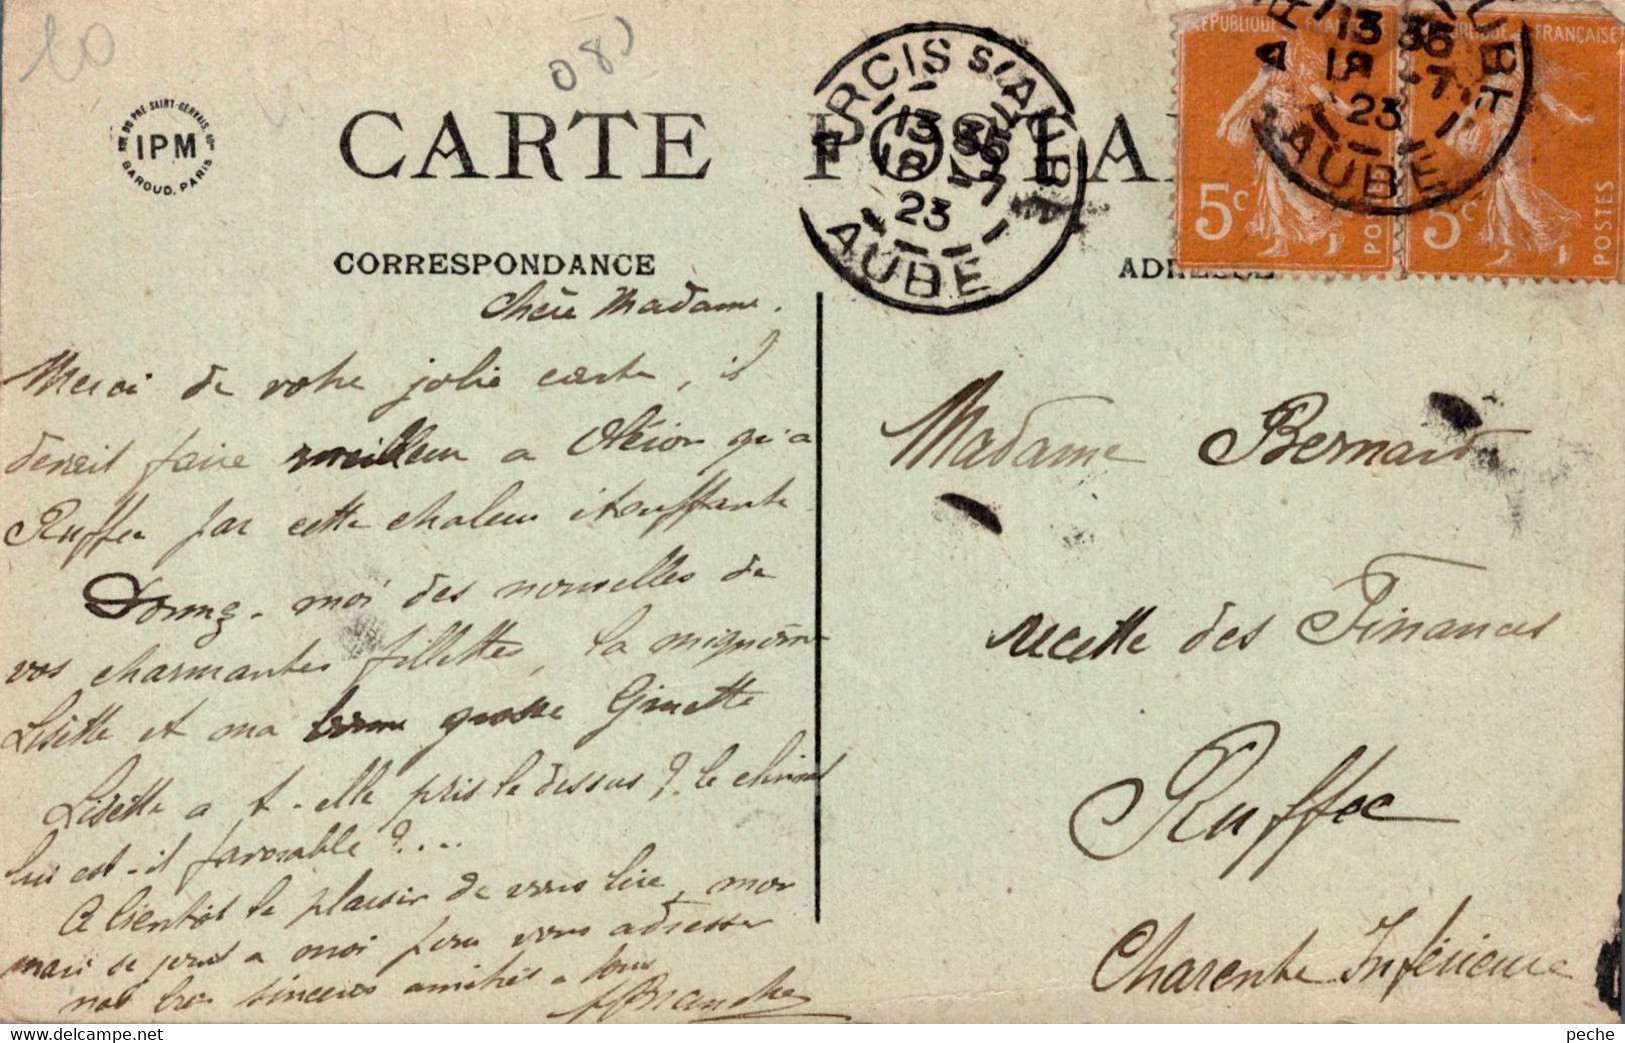 10
08)
RUE DU PRÉ-SAINT-GERVAIS
IPM
BAROUD. PARIS
CARTE POSTALE
ARCIS S/AUBE
13 35
18 -7
23
AUBE
RÉPUBLIQUE FRANÇAISE
5c
POSTES
RÉPUBLIQUE FRANÇAISE
5c
POSTES
13 35
18 -7
23
AUBE
CORRESPONDANCE
ADRESSE
Chère Madame.
Merci de votre jolie carte, il
devait faire meilleur a Oléron qu'a
Ruffec par cette chaleur étouffante
Donnez-moi des nouvelles de
vos charmantes fillettes, la mignonne
Lisette et ma bonne grosse Ginette
Lisette a t-elle pris le dessus ? le climat
lui est-il favorable ?....
A bientôt le plaisir de vous lire, mon
mari se joint a moi pour vous adresser
nos bien sincères amitiés a tous
Blanche
Madame Bernard
recette des Finances
Ruffec
Charente Inférieure
peche